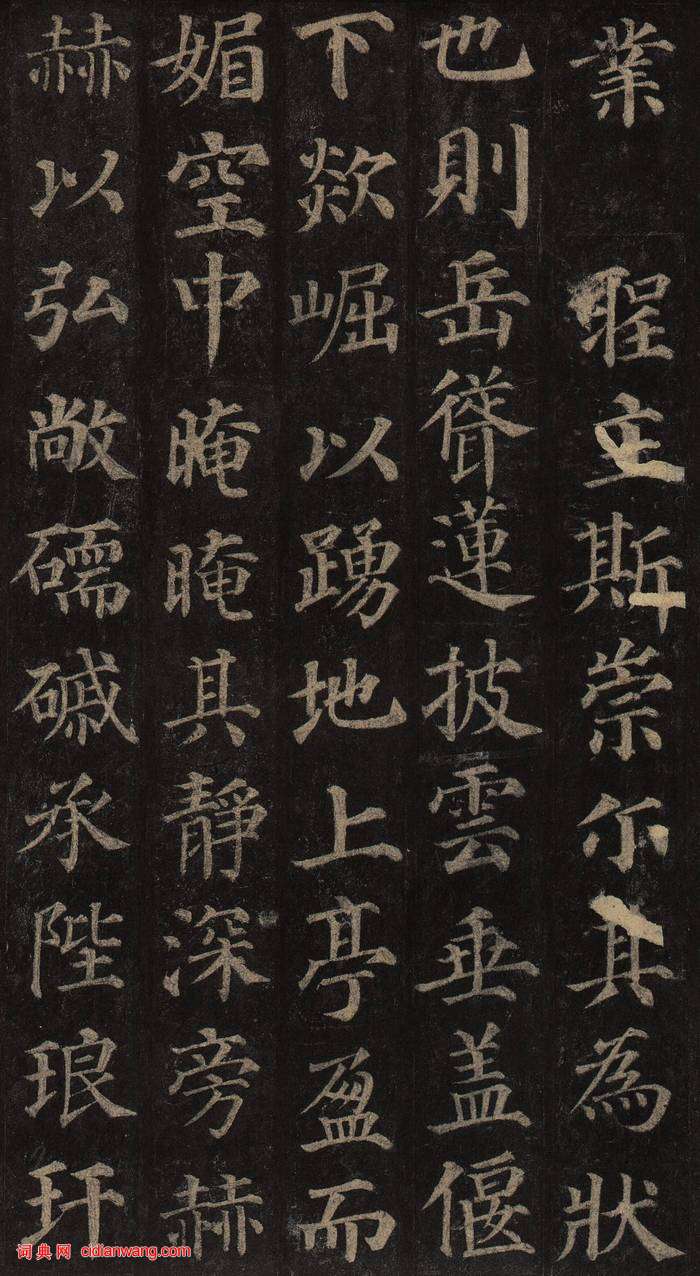 業 聖主斯崇尓其為狀
也則岳聳蓮披雲垂盖偃
下欻崛以踴地上亭盈而
媚空中晻晻其靜深旁赫
赫以弘敞礝磩承陛琅玕
词典网 cidianwang.com